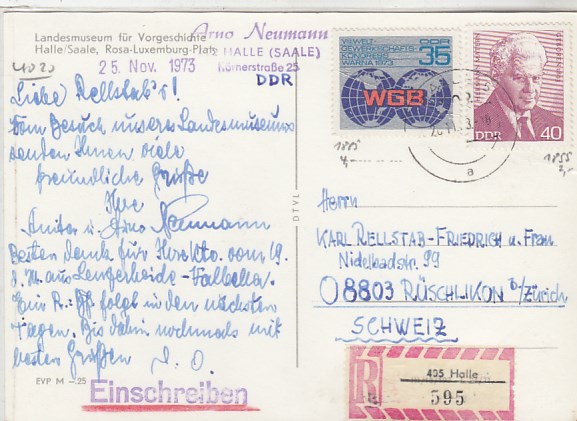 Landesmuseum für Vorgeschichte
Halle/Saale, Rosa-Luxemburg-Platz
Arno Neumann
HALLE (SAALE)
Körnerstraße 25
DDR
4020
25. Nov. 1973
Liebe Rellstab's!
Vom Besuch unseres Landesmuseums
senden Ihnen viele
freundliche Grüße
Ihre
Anita u. Arno Neumann
Besten Dank für Ihre Kto. vom 19.
d. M. aus Lenzerheide-Valbella.
Ein R.-Bf. folgt in den nächsten
Tagen. Bis dahin nochmals mit
besten Grüßen D. O.
EVP M -25
Einschreiben
DTVL
WELT-
GEWERKSCHAFTS-
KONGRESS
WARNA 1973
DDR
35
WGB
DDR
40
a
1885
4,-
1855
3,-
Herrn
KARL RELLSTAB-FRIEDRICH u. Frau
Nidelbadstr. 99
08803 RÜSCHLIKON b/Zürich
SCHWEIZ
R
405 Halle
595